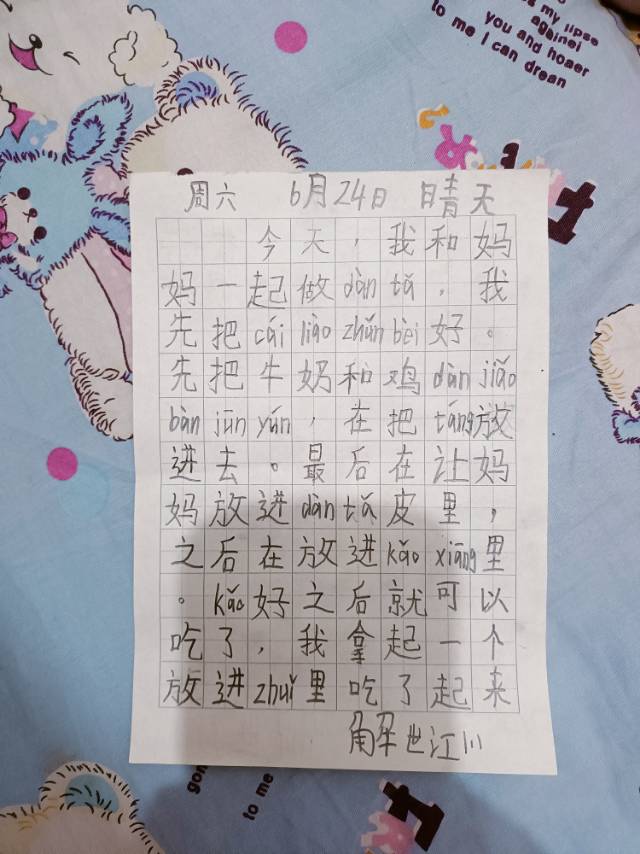 s my jipse
againei
you and hoaer
to me I can drean
周六 6月24日 晴天
今天，我和妈
妈一起做dàn tǎ，我
先把cái liào zhǔn bèi好。
先把牛奶和鸡dàn jiǎo
bàn jūn yún，在把táng放
进去。最后在让妈
妈放进dàn tǎ皮里，
之后在放进kǎo xiāng里
。kǎo好之后就可以
吃了，我拿起一个
放进zhuǐ里吃了起来
解世江川
to me